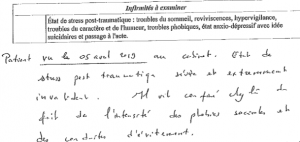 Infirmités à examiner
État de stress post-traumatique : troubles du sommeil, reviviscences, hypervigilance,
troubles du caractère et de l'humeur, troubles phobiques, état anxio-dépressif avec idée
suicidaires et passage à l'acte.
Patient vu le 05 avril 2019 au cabinet. Etat de
stress post traumatique sévère et extrêmement
invalidant. Il vit confiné chez lui du
fait de l'intensité des phobies sociales et
des conduites d'évitement.